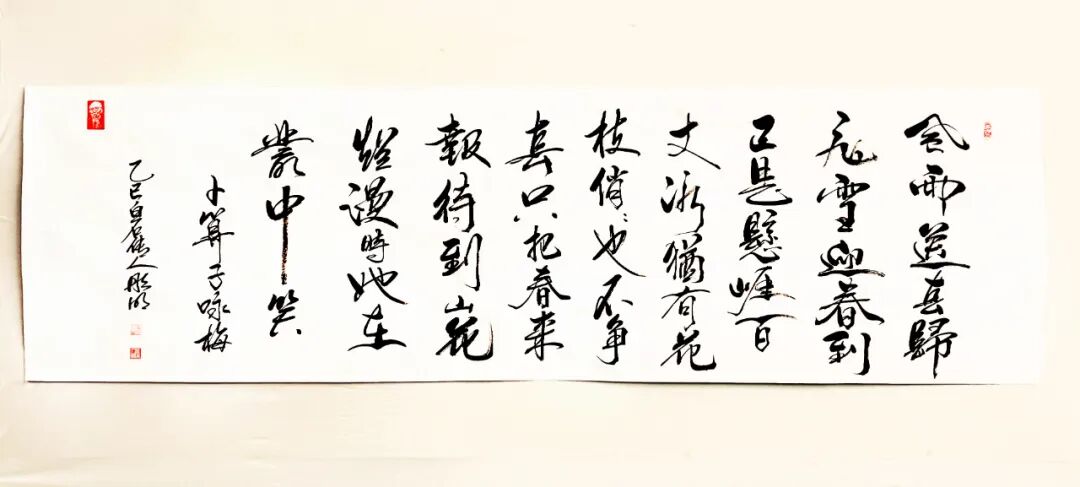 風雨送春歸
飛雪迎春到
已是懸崖百
丈冰猶有花
枝俏〻也不争
春只把春来
報待到山花
爛漫時她在
叢中笑
卜算子咏梅
乙巳